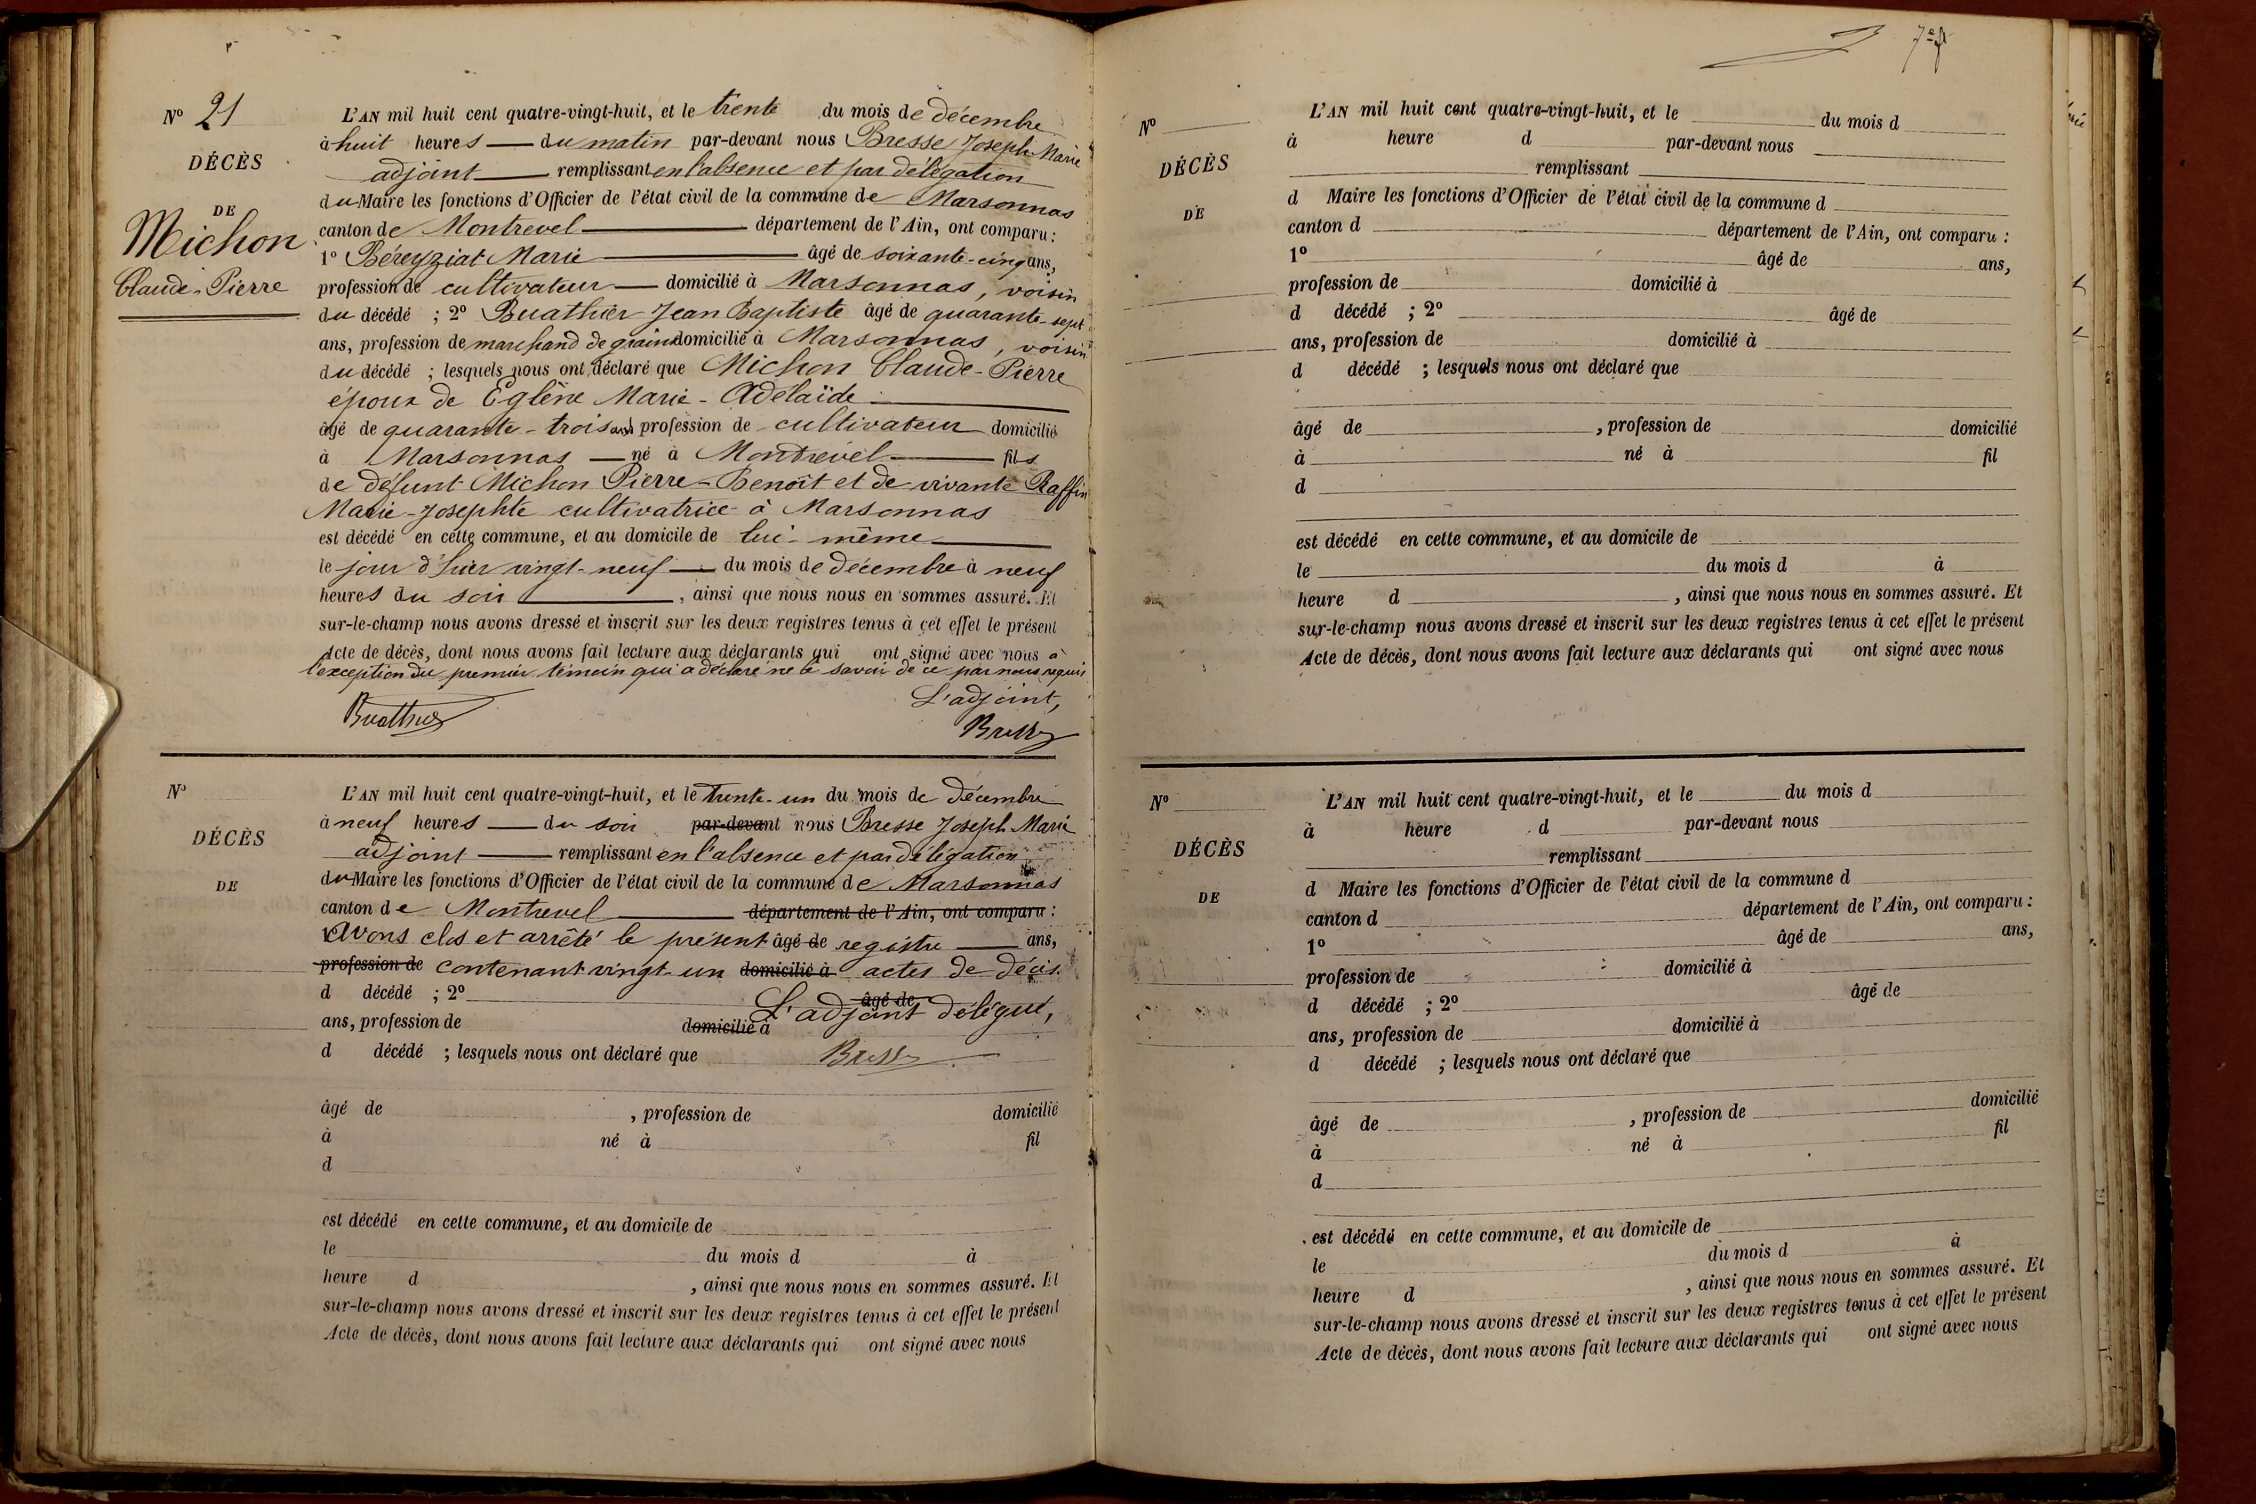 N° 21
DÉCÈS
DE
Michon
Claude-Pierre
L'AN mil huit cent quatre-vingt-huit, et le trente du mois de décembre
à huit heures — du matin par-devant nous Bresse Joseph Marie
adjoint — remplissant en l'absence et par délégation
du Maire les fonctions d'Officier de l'état civil de la commune de Marsonnas
canton de Montrevel — département de l'Ain, ont comparu :
1° Béreyziat Marie — âgé de soixante-cinq ans,
profession de cultivateur — domicilié à Marsonnas, voisin
du décédé ; 2° Buathier Jean Baptiste âgé de quarante-sept
ans, profession de marchand de grains domicilié à Marsonnas, voisin
du décédé ; lesquels nous ont déclaré que Michon Claude-Pierre
époux de Eglène Marie-Adélaïde —
âgé de quarante-trois ans profession de cultivateur domicilié
à Marsonnas — né à Montrevel — fils
de défunt Michon Pierre-Benoît et de vivante Raffin
Marie-Josephte cultivatrice à Marsonnas
est décédé en cette commune, et au domicile de lui-même —
le jour d'hier vingt-neuf — du mois de décembre à neuf
heures du soir —, ainsi que nous nous en sommes assuré. Et
sur-le-champ nous avons dressé et inscrit sur les deux registres tenus à cet effet le présent
Acte de décès, dont nous avons fait lecture aux déclarants qui ont signé avec nous à
l'exception du premier témoin qui a déclaré ne le savoir de ce par nous requis
L'adjoint,
Buathier
Bresse
N°
DÉCÈS
DE
L'AN mil huit cent quatre-vingt-huit, et le trente-un du mois de décembre
à neuf heures — du soir par-devant nous Bresse Joseph Marie
adjoint — remplissant en l'absence et par délégation
du Maire les fonctions d'Officier de l'état civil de la commune de Marsonnas
canton de Montrevel — département de l'Ain, ont comparu :
avons clos et arrêté le présent âgé de registre — ans,
profession de contenant vingt-un domicilié à actes de décès.
d décédé ; 2° âgé de
L'adjoint délégué,
ans, profession de domicilié à
d décédé ; lesquels nous ont déclaré que Bresse
âgé de , profession de domicilié
à né à fil
d
est décédé en cette commune, et au domicile de
le du mois d à
heure d , ainsi que nous nous en sommes assuré. Et
sur-le-champ nous avons dressé et inscrit sur les deux registres tenus à cet effet le présent
Acte de décès, dont nous avons fait lecture aux déclarants qui ont signé avec nous
N°
DÉCÈS
DE
L'AN mil huit cent quatre-vingt-huit, et le du mois d
à heure d par-devant nous
remplissant
d Maire les fonctions d'Officier de l'état civil de la commune d
canton d département de l'Ain, ont comparu :
1° âgé de ans,
profession de domicilié à
d décédé ; 2° âgé de
ans, profession de domicilié à
d décédé ; lesquels nous ont déclaré que
âgé de , profession de domicilié
à né à fil
d
est décédé en cette commune, et au domicile de
le du mois d à
heure d , ainsi que nous nous en sommes assuré. Et
sur-le-champ nous avons dressé et inscrit sur les deux registres tenus à cet effet le présent
Acte de décès, dont nous avons fait lecture aux déclarants qui ont signé avec nous
N°
DÉCÈS
DE
L'AN mil huit cent quatre-vingt-huit, et le du mois d
à heure d par-devant nous
remplissant
d Maire les fonctions d'Officier de l'état civil de la commune d
canton d département de l'Ain, ont comparu :
1° âgé de ans,
profession de domicilié à
d décédé ; 2° âgé de
ans, profession de domicilié à
d décédé ; lesquels nous ont déclaré que
âgé de , profession de domicilié
à né à fil
d
est décédé en cette commune, et au domicile de
le du mois d à
heure d , ainsi que nous nous en sommes assuré. Et
sur-le-champ nous avons dressé et inscrit sur les deux registres tenus à cet effet le présent
Acte de décès, dont nous avons fait lecture aux déclarants qui ont signé avec nous